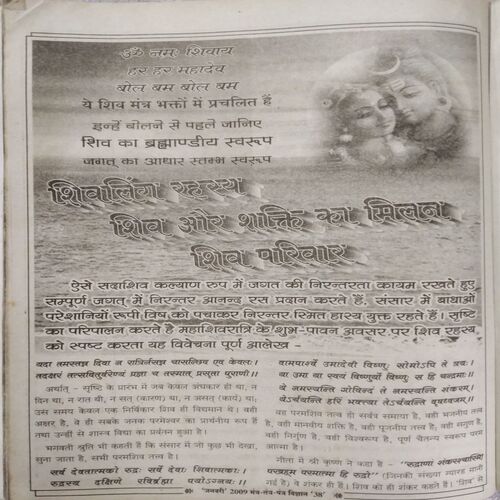 ॐ नमः शिवाय
हर हर महादेव
बोल बम बोल बम
ये शिव मंत्र भक्तों में प्रचलित हैं
इन्हें बोलने से पहले जानिए
शिव का ब्रह्माण्डीय स्वरूप
जगत् का आधार स्तम्भ स्वरूप
शिवालिंग रहस्य
शिव और शक्ति का मिलन
शिव परिवार
ऐसे सदाशिव कल्याण रूप में जगत की निरन्तरता कायम रखते हुए
सम्पूर्ण जगत् में निरन्तर आनन्द रस प्रदान करते हैं, संसार में बाधाओं
परेशानियां रूपी विष को पचाकर निरन्तर स्मित हास्य युक्त रहते हैं। सृष्टि
का परिपालन करते है महाशिवरात्रि के शुभ-पावन अवसर पर शिव रहस्य
को स्पष्ट करता यह विवेचना पूर्ण आलेख -
यदा तमस्तन्न दिवा न रात्रिर्नसन्न चासच्छिव एव केवलः।
तदक्षरं तत्सवितुर्वरेण्यं प्रज्ञा च तस्मात् प्रसृता पुराणी॥
अर्थात् - सृष्टि के प्रारंभ में जब केवल अंधकार ही था, न
दिन था, न रात थी, न सत् (कारण) था, न असत् (कार्य) था;
उस समय केवल एक निर्विकार शिव ही विद्यमान थे। वही
अक्षर है, वे ही सबके जनक परमेश्वर का प्रार्थनीय रूप हैं
तथा उन्हीं से शास्त्र विद्या का प्रवर्तन हुआ है।
भगवती श्रुति भी कहती हैं कि संसार में जो कुछ भी देखा,
सुना जाता है, सभी परमशिव तत्व है।
सर्व देवतात्मको रुद्रः सर्वे देवाः शिवात्मकाः।
रुद्रस्य दक्षिणे रविर्ब्रह्मा त्रयोऽग्नयः॥
वामपार्श्वे उमादेवी विष्णुः सोमोऽपि ते त्रयः।
या उमा या स्वयं विष्णुर्यो विष्णुः स हि चन्द्रमाः॥
ये नमस्यन्ति गोविन्दं ते नमस्यन्ति शंकरम्।
येऽर्चयन्ति हरिं भक्त्या तेऽर्चयन्ति वृषध्वजम्॥
यह परमशिव तत्व ही सर्वत्र समाया है, वही भजनीय तत्व
है, वही मानवीय शक्ति है, वही पूजनीय तत्व है; वही सगुण है,
वही निर्गुण है, वही विश्वरूप है, पूर्ण चैतन्य स्वरूप परम
आत्मा है।
गीता में श्री कृष्ण ने कहा है - "रुद्राणां शंकरश्चास्मि।
परब्रह्म परमात्मा हि रुद्रो" (जिनकी संख्या ग्यारह मानी
गई है) वे शंकर ही हैं। शिव को ही शंकर कहते हैं। 'शिव' से
"जनवरी' 2009 मंत्र-तंत्र-यंत्र विज्ञान '38'